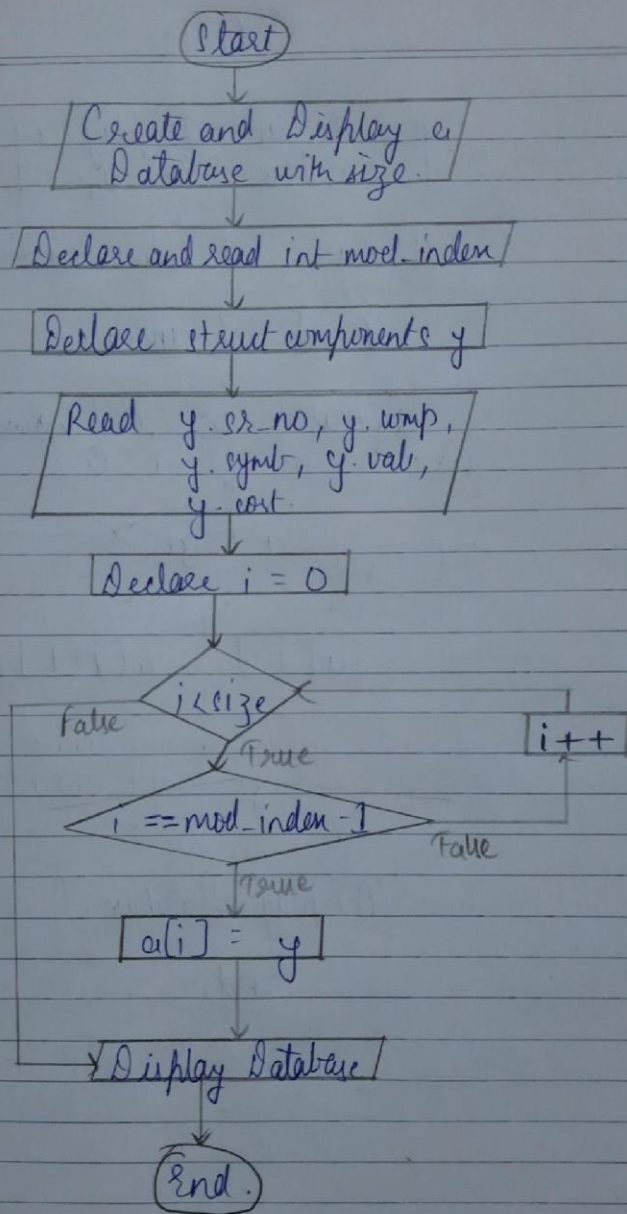 Start
Create and Display a
Database with size.
Declare and read int mod_index
Declare struct components y
Read y.sr_no, y.comp,
y.symb, y.val,
y.cost
Declare i = 0
i<size
False
True
i++
i ==mod_index-1
False
True
a[i] = y
Display Database
End.